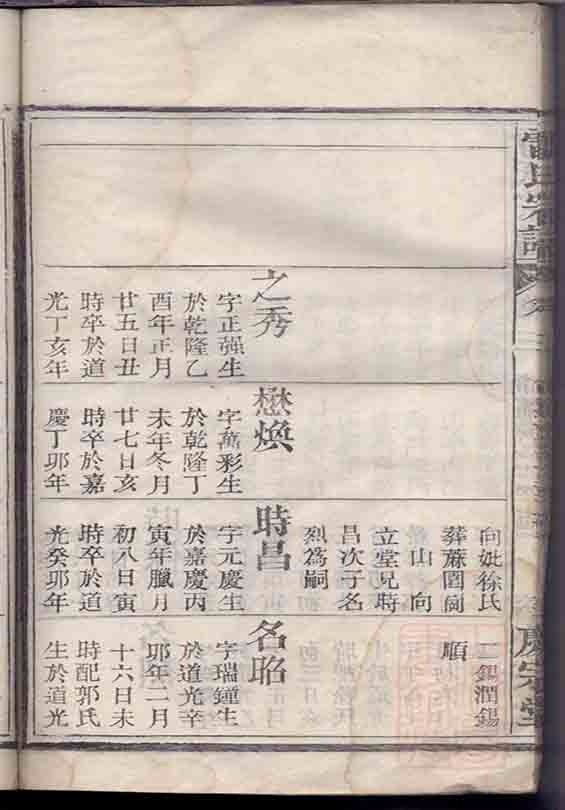 雷氏宗譜
卷三
慶宗堂
之秀
字正强生
於乾隆乙
酉年正月
廿五日丑
時卒於道
光丁亥年
懋煥
字萬彩生
於乾隆丁
未年冬月
廿七日亥
時卒於嘉
慶丁卯年
向妣徐氏
葬蔴園
山向
立堂兄時
昌次子名
烈為嗣
時昌
字元慶生
於嘉慶丙
寅年臘月
初八日寅
時卒於道
光癸卯年
二錫潤錫
順
名昭
字瑞鐘生
於道光辛
卯年二月
十六日未
時配郭氏
生於道光